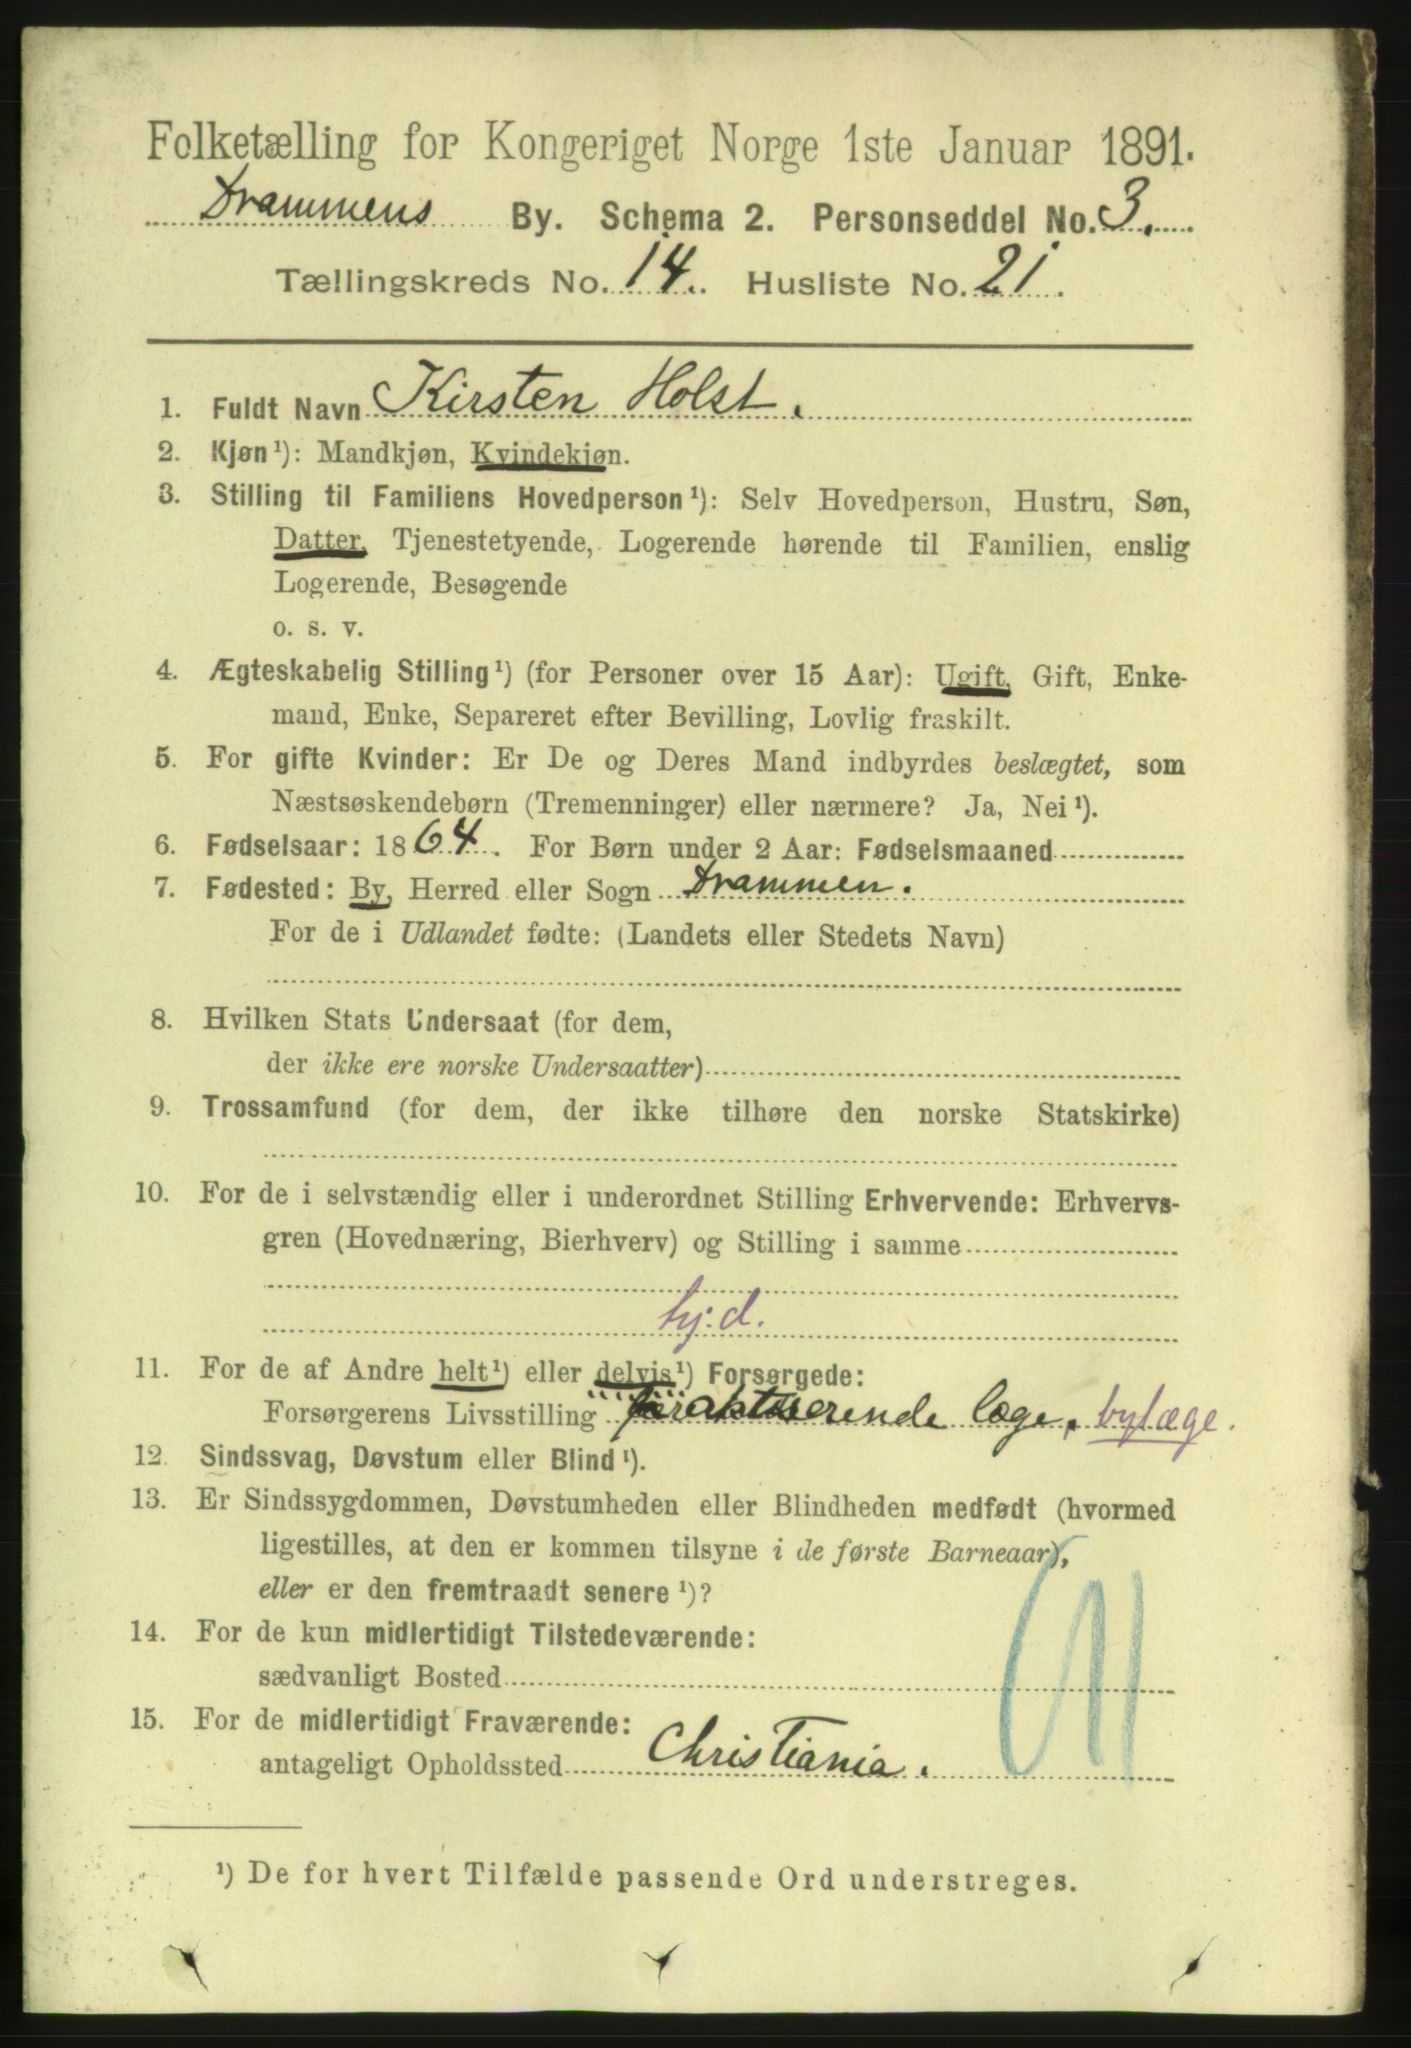 Folketælling for Kongeriget Norge 1ste Januar 1891.
Drammens By. Schema 2. Personseddel No. 3.
Tællingskreds No. 14. Husliste No. 21.
1. Fuldt Navn Kirsten Holst.
2. Kjøn¹): Mandkjøn, Kvindekjøn.
3. Stilling til Familiens Hovedperson¹): Selv Hovedperson, Hustru, Søn,
Datter, Tjenestetyende, Logerende hørende til Familien, enslig
Logerende, Besøgende
o. s. v.
4. Ægteskabelig Stilling¹) (for Personer over 15 Aar): Ugift, Gift, Enke-
mand, Enke, Separeret efter Bevilling, Lovlig fraskilt.
5. For gifte Kvinder: Er De og Deres Mand indbyrdes beslægtet, som
Næstsøskendebørn (Tremenninger) eller nærmere? Ja, Nei¹).
6. Fødselsaar: 1864. For Børn under 2 Aar: Fødselsmaaned
7. Fødested: By, Herred eller Sogn Drammen.
For de i Udlandet fødte: (Landets eller Stedets Navn)
8. Hvilken Stats Undersaat (for dem,
der ikke ere norske Undersaatter)
9. Trossamfund (for dem, der ikke tilhøre den norske Statskirke)
10. For de i selvstændig eller i underordnet Stilling Erhvervende: Erhvervs-
gren (Hovednæring, Bierhverv) og Stilling i samme
hj: d.
11. For de af Andre helt¹) eller delvis¹) Forsørgede:
Forsørgerens Livsstilling praktiserende læge, bylæge.
12. Sindssvag, Døvstum eller Blind¹).
13. Er Sindssygdommen, Døvstumheden eller Blindheden medfødt (hvormed
ligestilles, at den er kommen tilsyne i de første Barneaar),
eller er den fremtraadt senere¹)?
14. For de kun midlertidigt Tilstedeværende:
sædvanligt Bosted
15. For de midlertidigt Fraværende:
antageligt Opholdssted Christiania.
¹) De for hvert Tilfælde passende Ord understreges.